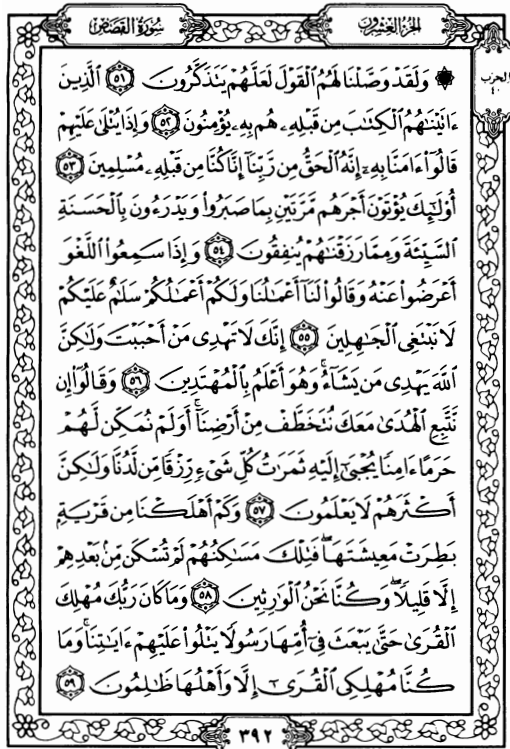 سُورَةُ القَصَصِ
الجُزءُ العِشرُونَ
الحزب
٤٠
۞ وَلَقَدْ وَصَّلْنَا لَهُمُ ٱلْقَوْلَ لَعَلَّهُمْ يَتَذَكَّرُونَ ٥١ ٱلَّذِينَ
ءَاتَيْنَٰهُمُ ٱلْكِتَٰبَ مِن قَبْلِهِۦ هُم بِهِۦ يُؤْمِنُونَ ٥٢ وَإِذَا يُتْلَىٰ عَلَيْهِمْ
قَالُوٓا۟ ءَامَنَّا بِهِۦٓ إِنَّهُ ٱلْحَقُّ مِن رَّبِّنَآ إِنَّا كُنَّا مِن قَبْلِهِۦ مُسْلِمِينَ ٥٣
أُو۟لَٰٓئِكَ يُؤْتَوْنَ أَجْرَهُم مَّرَّتَيْنِ بِمَا صَبَرُوا۟ وَيَدْرَءُونَ بِٱلْحَسَنَةِ
ٱلسَّيِّئَةَ وَمِمَّا رَزَقْنَٰهُمْ يُنفِقُونَ ٥٤ وَإِذَا سَمِعُوا۟ ٱللَّغْوَ
أَعْرَضُوا۟ عَنْهُ وَقَالُوا۟ لَنَآ أَعْمَٰلُنَا وَلَكُمْ أَعْمَٰلُكُمْ سَلَٰمٌ عَلَيْكُمْ
لَا نَبْتَغِى ٱلْجَٰهِلِينَ ٥٥ إِنَّكَ لَا تَهْدِى مَنْ أَحْبَبْتَ وَلَٰكِنَّ
ٱللَّهَ يَهْدِى مَن يَشَآءُ ۚ وَهُوَ أَعْلَمُ بِٱلْمُهْتَدِينَ ٥٦ وَقَالُوٓا۟ إِن
نَّتَّبِعِ ٱلْهُدَىٰ مَعَكَ نُتَخَطَّفْ مِنْ أَرْضِنَآ ۚ أَوَلَمْ نُمَكِّن لَّهُمْ
حَرَمًا ءَامِنًا يُجْبَىٰٓ إِلَيْهِ ثَمَرَٰتُ كُلِّ شَىْءٍ رِّزْقًا مِّن لَّدُنَّا وَلَٰكِنَّ
أَكْثَرَهُمْ لَا يَعْلَمُونَ ٥٧ وَكَمْ أَهْلَكْنَا مِن قَرْيَةٍۭ
بَطِرَتْ مَعِيشَتَهَا ۖ فَتِلْكَ مَسَٰكِنُهُمْ لَمْ تُسْكَن مِّنۢ بَعْدِهِمْ
إِلَّا قَلِيلًا ۖ وَكُنَّا نَحْنُ ٱلْوَٰرِثِينَ ٥٨ وَمَا كَانَ رَبُّكَ مُهْلِكَ
ٱلْقُرَىٰ حَتَّىٰ يَبْعَثَ فِىٓ أُمِّهَا رَسُولًا يَتْلُوا۟ عَلَيْهِمْ ءَايَٰتِنَا ۚ وَمَا
كُنَّا مُهْلِكِى ٱلْقُرَىٰٓ إِلَّا وَأَهْلُهَا ظَٰلِمُونَ ٥٩
٣٩٢